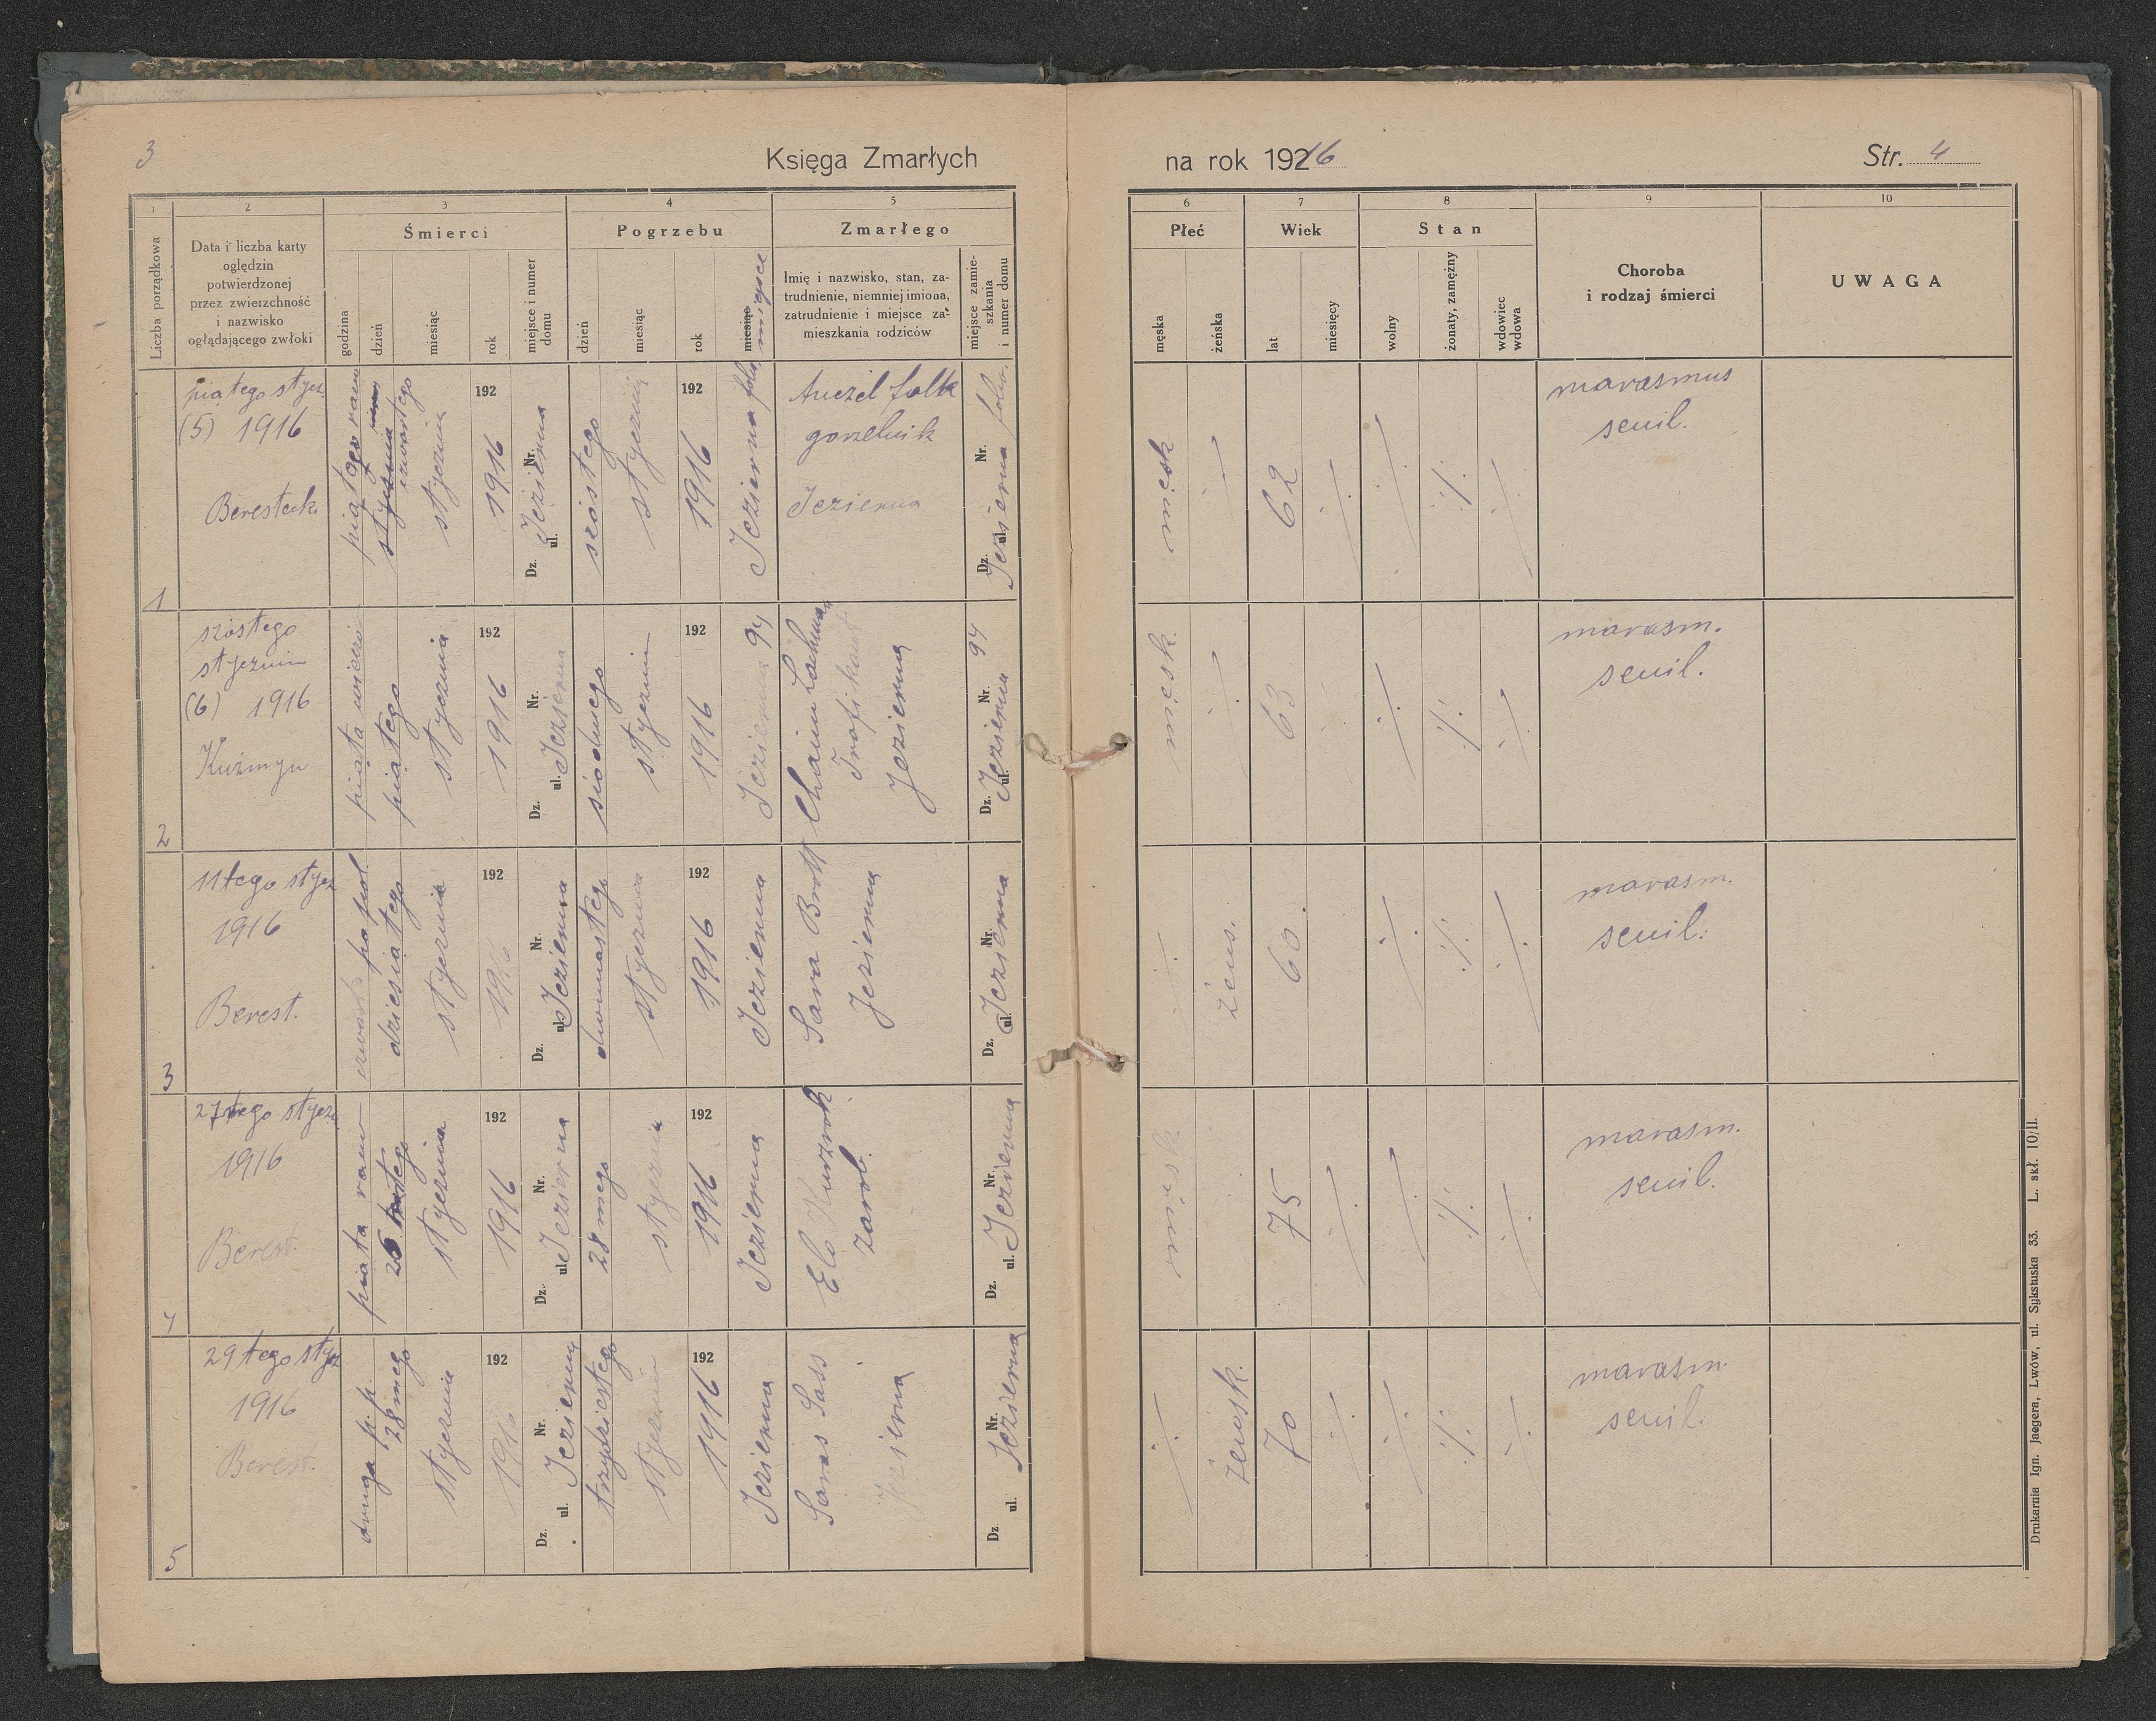 3
Księga Zmarłych
na rok 1916
Str. 4
1
2
3
4
5
Liczba porządkowa
Data i liczba karty
oględzin
potwierdzonej
przez zwierzchność
i nazwisko
oglądającego zwłoki
Śmierci
godzina
dzień
miesiąc
rok
miejsce i numer
domu
Pogrzebu
dzień
miesiąc
rok
miesiąc
miejsce
Zmarłego
Imię i nazwisko, stan, za-
trudnienie, niemniej imiona,
zatrudnienie i miejsce za-
mieszkania rodziców
miejsce zamie-
szkania
i numer domu
6
7
8
9
10
Płeć
męska
żeńska
Wiek
lat
miesięcy
Stan
wolny
żonaty, zamężny
wdowiec
wdowa
Choroba
i rodzaj śmierci
UWAGA
1
piątego stycz.
(5) 1916
Beresteck.
piątego rano
stycznia
czwartego
stycznia
192
1916
Dz. ul. Nr.
Jezierna
szóstego
stycznia
192
1916
Jezierna folw.
falk
gorzelnik
Jezierna
Dz. ul. Nr.
Jezierna folw.
męsk
62
marasmus
senil.
2
szóstego
stycznia
(6) 1916
Kuźmyn
piąta wieczór
piątego
stycznia
192
1916
Dz. ul. Nr.
Jezierna
siódmego
stycznia
192
1916
Jezierna 94
Chaim
Jezierna
Dz. ul. Nr.
Jezierna 94
męsk
63
marasm.
senil.
3
11tego stycz
1916
Berest.
czwarta po poł.
dziesiątego
stycznia
192
1916
Dz. ul. Nr.
Jezierna
dwunastego
stycznia
192
1916
Jezierna
Sara Brott
Jezierna
Dz. ul. Nr.
Jezierna
żeńs.
60
marasm.
senil.
4
27mego stycz.
1916
Berest.
piąta rano
26
stycznia
192
1916
Dz. ul. Nr.
Jezierna
28mego
stycznia
192
1916
Jezierna
Elo Kurzrok
zarob.
Dz. ul. Nr.
Jezierna
męsk
75
marasm.
senil.
5
29tego stycz
1916
Berest.
druga p.p.
28mego
stycznia
192
1916
Dz. ul. Nr.
Jezierna
trzydziestego
stycznia
192
1916
Jezierna
Saras Sass
Jezierna
Dz. ul. Nr.
Jezierna
żeńsk.
70
marasm.
senil.
Drukarnia Ign. Jaegera, Lwów, ul. Sykstuska 33. L. skł. 10/II.